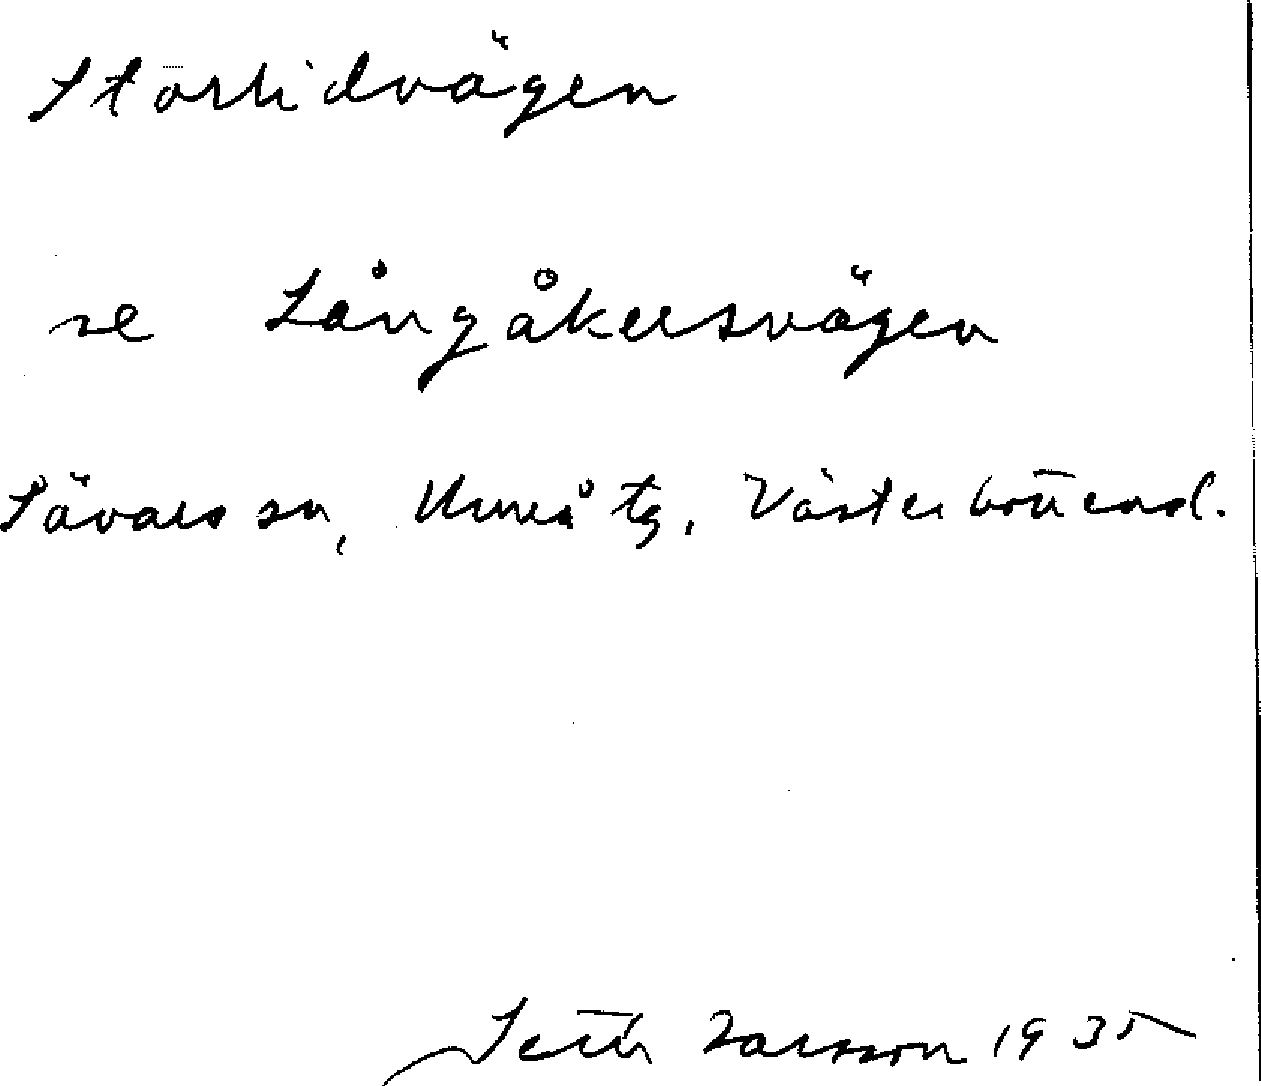 Storlidvägen
se Långåkersvägen
Sävars sn, Umeå tg. Västerbottens l.
Seth Larsson 1935